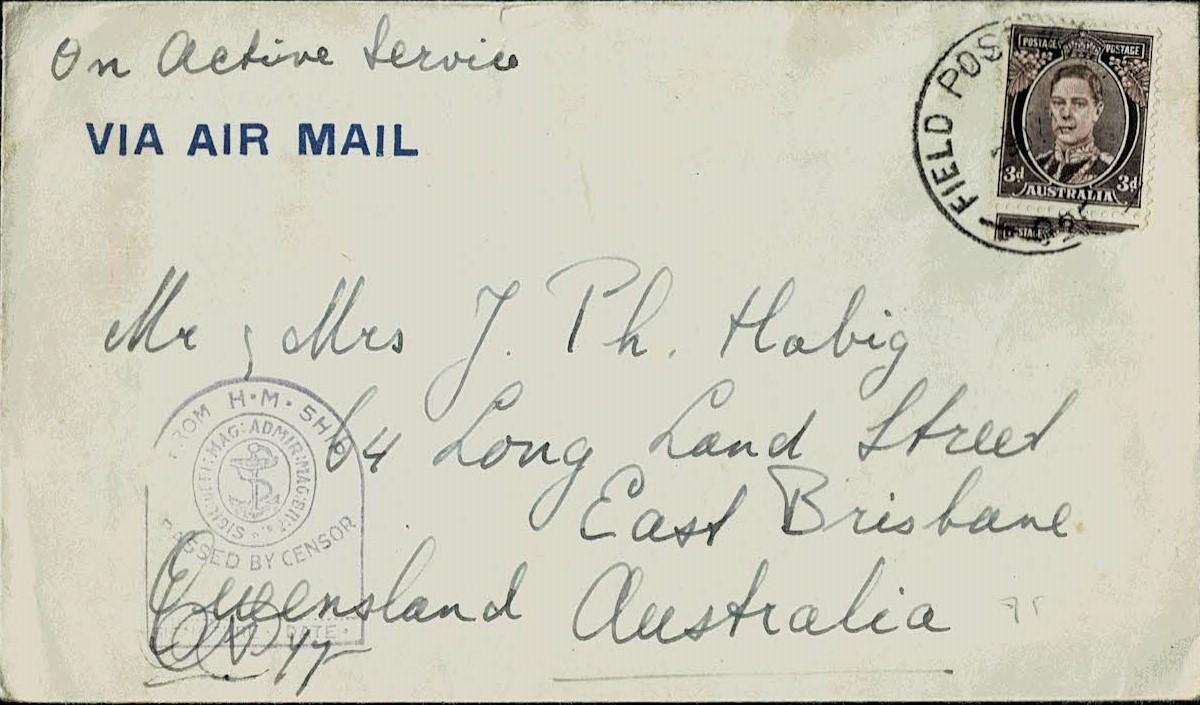 On Active Service
VIA AIR MAIL
FIELD POS
POSTAGE POSTAGE
3d 3d
AUSTRALIA
Mr & Mrs J. Ph. Habig
64 Long Land Street
East Brisbane
Queensland Australia
FROM H.M. SHIP
MAG: ADMIR: MAG: BRIT
PASSED BY CENSOR
DATE
75